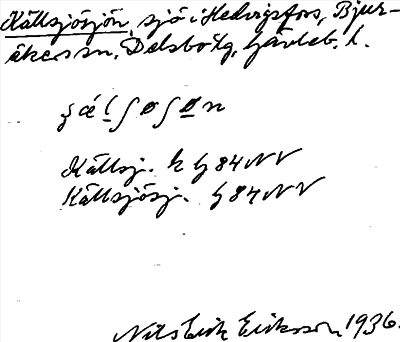 Källsjösjön, sjö i Hedvigsfors, Bjur-
åkers sn, Delsbo tg, Gävleb. l.
Källsj. k G 84 NV
Källsjösj. G 84 NV
Nils Erik Eriksson 1936.